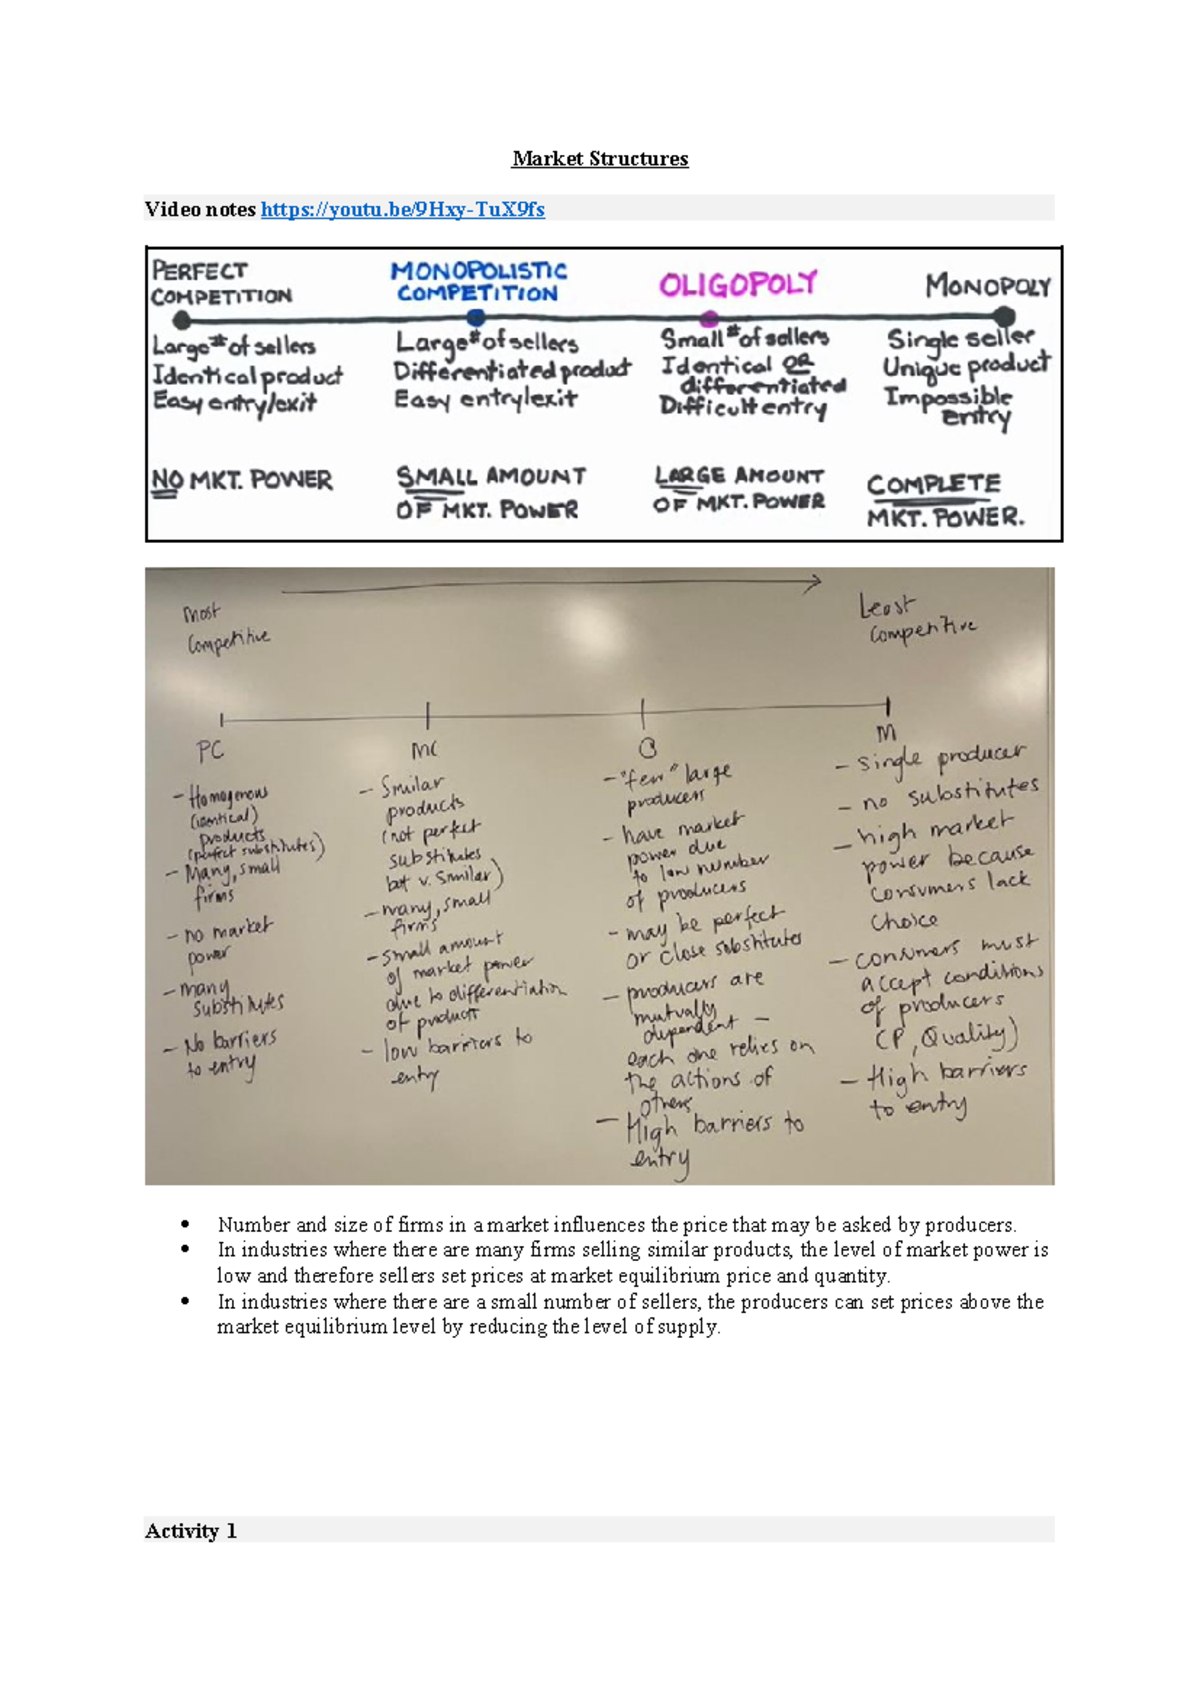 Market Structures
Video notes https://youtu.be/9Hxy-TuX9fs
PERFECT
COMPETITION
Large # of sellers
Identical product
Easy entry/exit
NO MKT. POWER
MONOPOLISTIC
COMPETITION
Large # of sellers
Differentiated product
Easy entry/exit
SMALL AMOUNT
OF MKT. POWER
OLIGOPOLY
Small # of sellers
Identical OR
differentiated
Difficult entry
LARGE AMOUNT
OF MKT. POWER
MONOPOLY
Single seller
Unique product
Impossible
entry
COMPLETE
MKT. POWER.
Most
Competitive
Least
Competitive
PC
- Homogenous
(identical)
products
(perfect substitutes)
- Many, small
firms
- no market
power
- many
substitutes
- No barriers
to entry
MC
- Similar
products
(not perfect
substitutes
but v. similar)
- many, small
firms
- small amount
of market power
due to differentiation
of product
- low barriers to
entry
O
- "few" large
producers
- have market
power due
to low number
of producers
- may be perfect
or close substitutes
- producers are
mutually
dependent -
each one relies on
the actions of
others
- High barriers to
entry
M
- single producer
- no substitutes
- high market
power because
consumers lack
choice
- consumers must
accept conditions
of producers
(P, Quality)
- High barriers
to entry
• Number and size of firms in a market influences the price that may be asked by producers.
• In industries where there are many firms selling similar products, the level of market power is
low and therefore sellers set prices at market equilibrium price and quantity.
• In industries where there are a small number of sellers, the producers can set prices above the
market equilibrium level by reducing the level of supply.
Activity 1